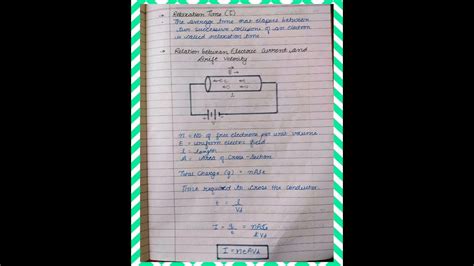 → Relaxation Time (τ)
The average time has elapses between
two successive collisions of an electron
is called relaxation time
→ Relation between Electric Current and
Drift Velocity
E
l
V
n = no of free electrons per unit volume
E = uniform electric field
l = length
A = Area of Cross-Section
Total Charge (q) = nAle
Time required to cross the conductor
t = l/Vd
I = q/t = nAle/l Vd
I = neAVd